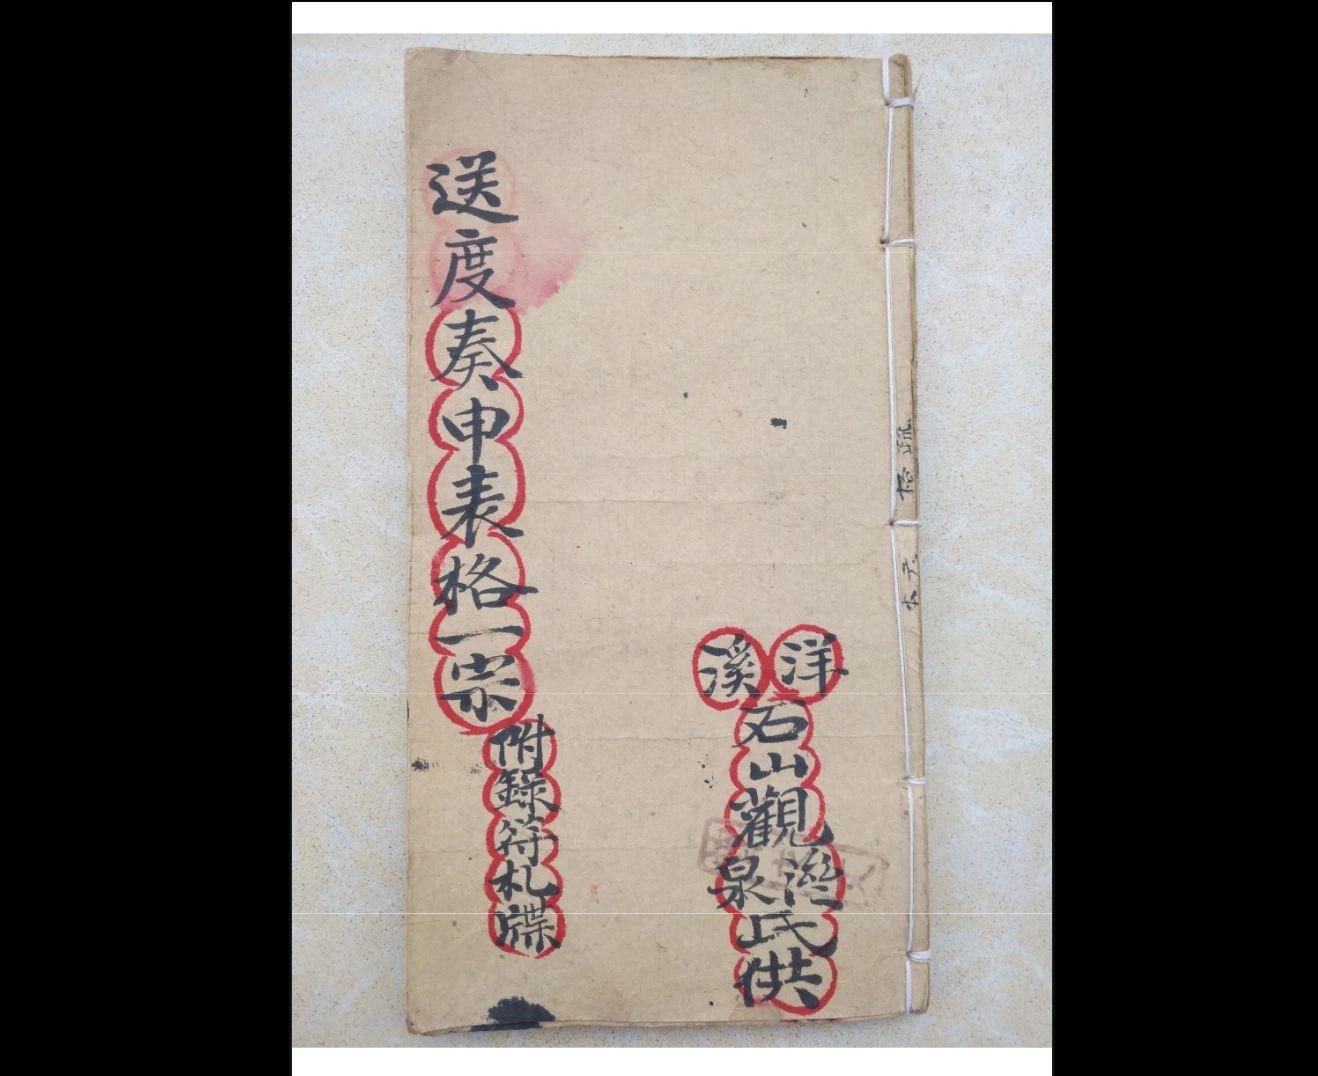 洋溪石山觀滋泉氏供
送度奏申表格一宗
附錄符札牒